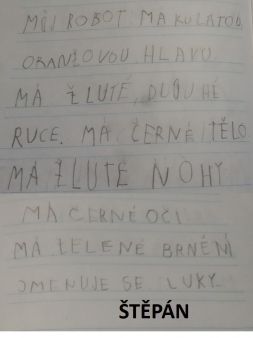 MŮJ ROBOT MA KULATOU
ORANŽOVOU HLAVU
MÁ ŽLUTÉ, DLOUHÉ
RUCE. MÁ ČERNÉ TĚLO
MÁ ŽLUTÉ NOHY
MÁ ČERNÉ OČI
MÁ ZELENÉ BRNĚNÍ
JMENUJE SE LUKY
ŠTĚPÁN